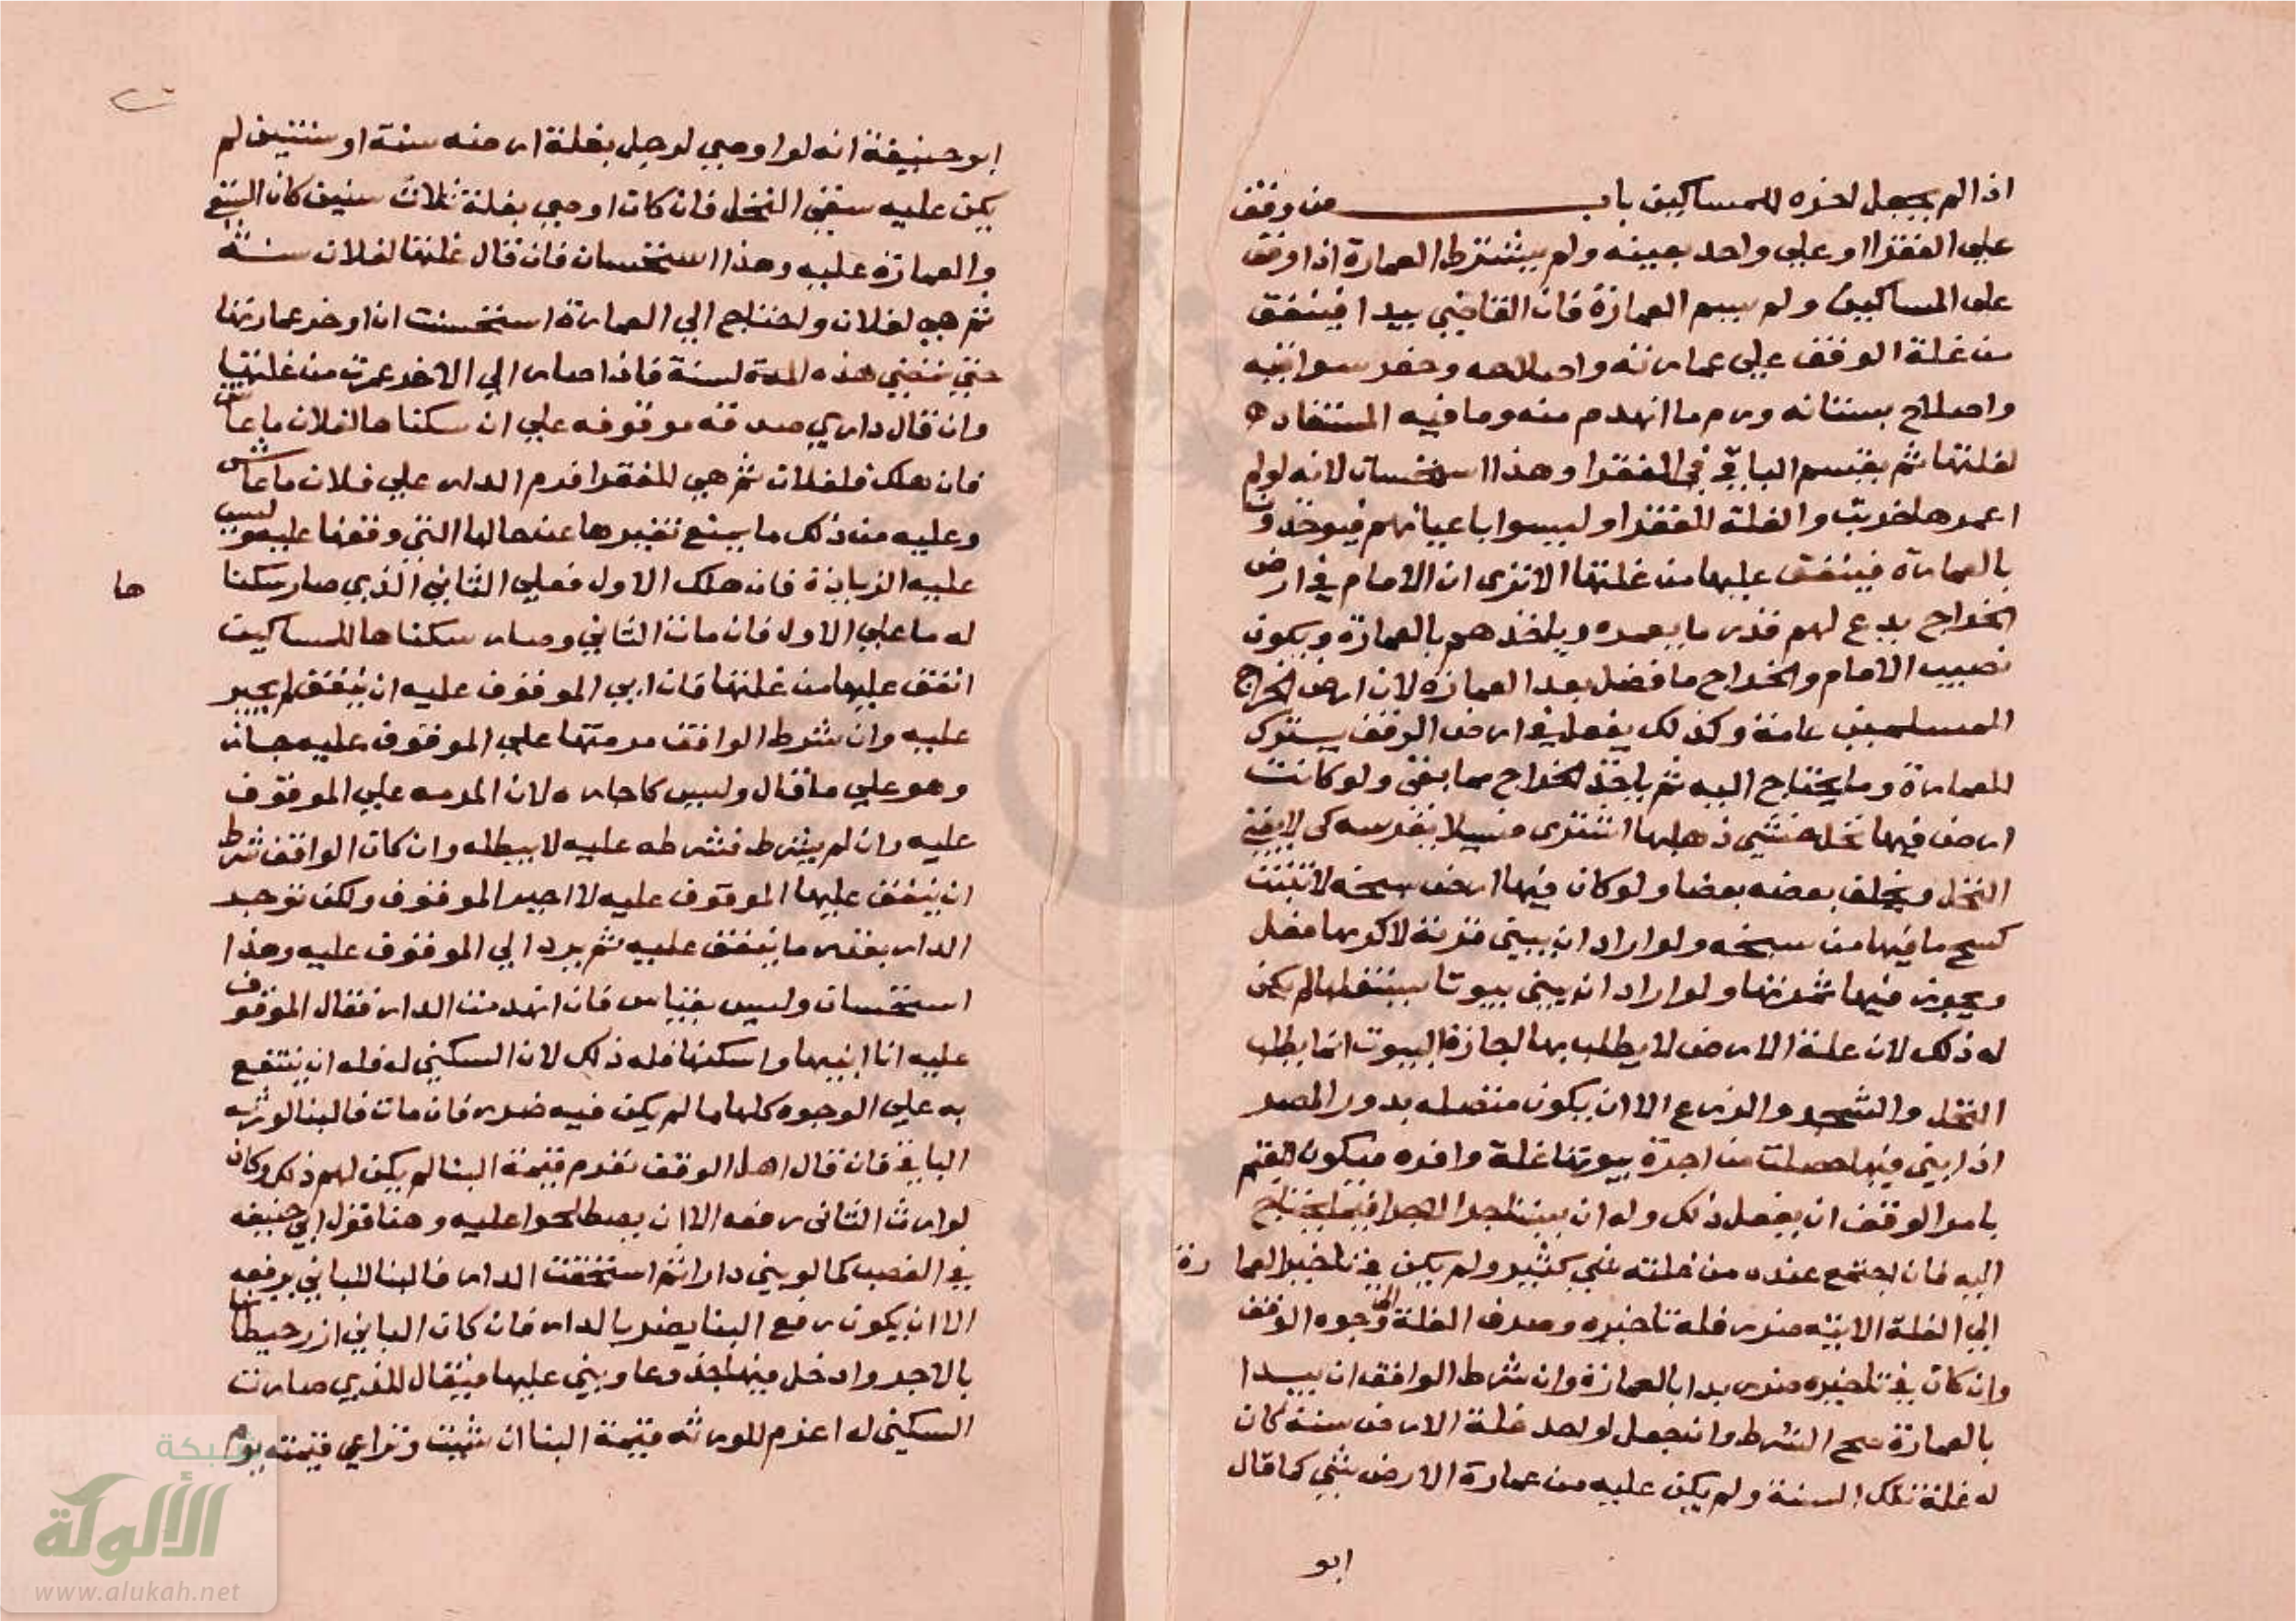 اذا لم يجعل اخره للمساكين باب من وقف
على الفقرا او على واحد بعينه ولم يشترط العمارة اذا وقف
على المساكين ولم يسم العمارة فان القاضي يبدا فينفق
من غلة الوقف على عمارته واصلاحه وحفر سواقيه
واصلاح بستانه ورم ما انهدم منه وما فيه المستفاد
لغلتها ثم يقسم الباقي في الفقرا وهذا استحسان لانه لو لم
اعمرها خربت والغلة للفقرا وليسوا باعيانهم فيوخذون
بالعمارة فينفق عليها من غلتها الا ترى ان الامام في ارض
الخراج يدع لهم قدر ما يعمره وياخذهم بالعمارة ويكون
نصيب الامام والخراج ما فضل بعد العمارة لان ارض الخراج
للمسلمين عامة وكذلك يفعل في ارض الوقف يترك
للعمارة وما يحتاج اليه ثم ياخذ الخراج مما بقى ولو كانت
ارض فيها نخل خشي ذهابها اشترى فسيلا يغرسه كى لا يفنى
النخل ويخلف بعضه بعضا ولو كان فيها ارض سبخه لا تنبت
كسح ما فيها من سبخه ولو اراد ان يبنى قرية لاكرتها فعل
ويحوز فيها ثمرتها ولو اراد ان يبنى بيوتا يستغلها لم يكن
له ذلك لان غلة الارض لا يطلب بها اجارة البيوت انما يطلب
النخل والشجر والزرع الا ان يكون متصله بدور المصر
اذا بنى فيها حصلت من اجرة بيوتها غلة وافره فيكون للقيم
بامر الوقف ان يفعل ذلك وله ان يستاجر الاجرا فيما يحتاج
اليه فان اجتمع عنده من غلته شي كثير ولم يكن في تاخير العمارة
الى الغلة الاتيه ضرر فله تاخيره وصرف الغلة الى وجوه الوقف
وان كان في تاخيره ضرر بدا بالعمارة وان شرط الواقف ان يبدا
بالعمارة صح الشرط وان جعل لواحد غلة الارض سنة كان
له غلة تلك السنة ولم يكن عليه من عمارة الارض شي كما قال
ابو
ابو حنيفة انه لو اوصي لرجل بغلة ارضه سنة او سنتين لم
يكن عليه سقي النخل فان كان اوصي بغلة ثلاث سنين كان السقي
والعمارة عليه وهذا استحسان فان قال غلتها لفلان سنة
ثم هي لفلان واحتاج الي العمارة استحسنت ان اوخر عمارتها
حتي تمضي هذه المدة لسنة فاذا صار الي الاخر عمرت من غلتها
وان قال داري صدقه موقوفه علي ان سكناها لفلان ما عاش
فان هلك فلفلان ثم هي للفقرا فرم الدار علي فلان ما عاش
وعليه من ذلك ما يمنع تغيرها عن حالها التي وقفها عليه وليس
عليه الزيادة فان هلك الاول فعلي الثاني الذي صار سكناها
له ما علي الاول فان مات الثاني وصار سكناها للمساكين
انفق عليها من غلتها فان ابي الموقوف عليه ان ينفق لم يجبر
عليه وان شرط الواقف مرمتها علي الموقوف عليه جاز
وهو علي ما قال وليس كاجاره لان المرمه علي الموقوف
عليه وان لم يشرط فشرطه عليه لا يبطله وان كان الواقف شرط
ان ينفق عليها الموقوف عليه لا اجبر الموقوف ولكن توجر
الدار بقدر ما ينفق عليه ثم يرد الي الموقوف عليه وهذا
استحسان وليس بقياس فان انهدمت الدار فقال الموقوف
عليه انا ابنيها واسكنها فله ذلك لان السكني له فله ان ينتفع
به علي الوجوه كلها ما لم يكن فيه ضرر فان مات فالبنا لورثه
الباني فان قال اهل الوقف نغرم قيمة البنا لم يكن لهم ذلك وكان
لوارث الثانى رفعه الا ان يصطلحوا عليه وهنا قول ابي حنيفه
في الغصب كما لو بني دارا ثم استحقت الدار فالبنا للباني يرفعه
الا ان يكون رفع البنا يضر بالدار فان كان الباني ازر حيطانها
بالاجر وادخل فيها جذوعا وبني عليها فيقال للذي صارت
السكنى له اغرم للورثه قيمة البنا ان شيت وتراعي قيمته يوم
شبكة
الألوكة
www.alukah.net